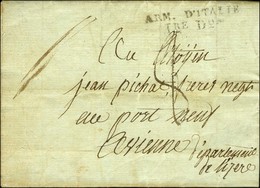 ARM. D'ITALIE
1RE Don
Au Citoyen
jean pichat freres negt
au port neuf
Avienne
Departement
de lizere